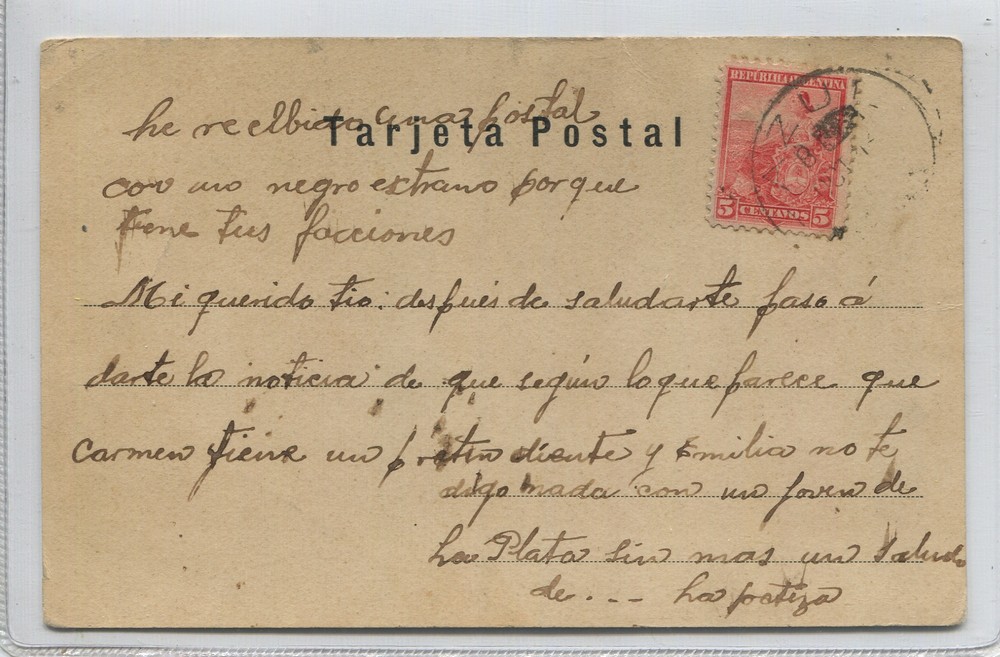 he recibido una postal
Tarjeta Postal
con un negro estrano porque
tiene tus facciones
REPUBLICA ARGENTINA
5 CENTAVOS 5
Mi querido tio: después de saludarte paso á
darte la noticia de que según lo que parece que
Carmen tiene un pretendiente y Emilia no te
digo nada con un joven de
La Plata sin mas un saludo
de... La petiza